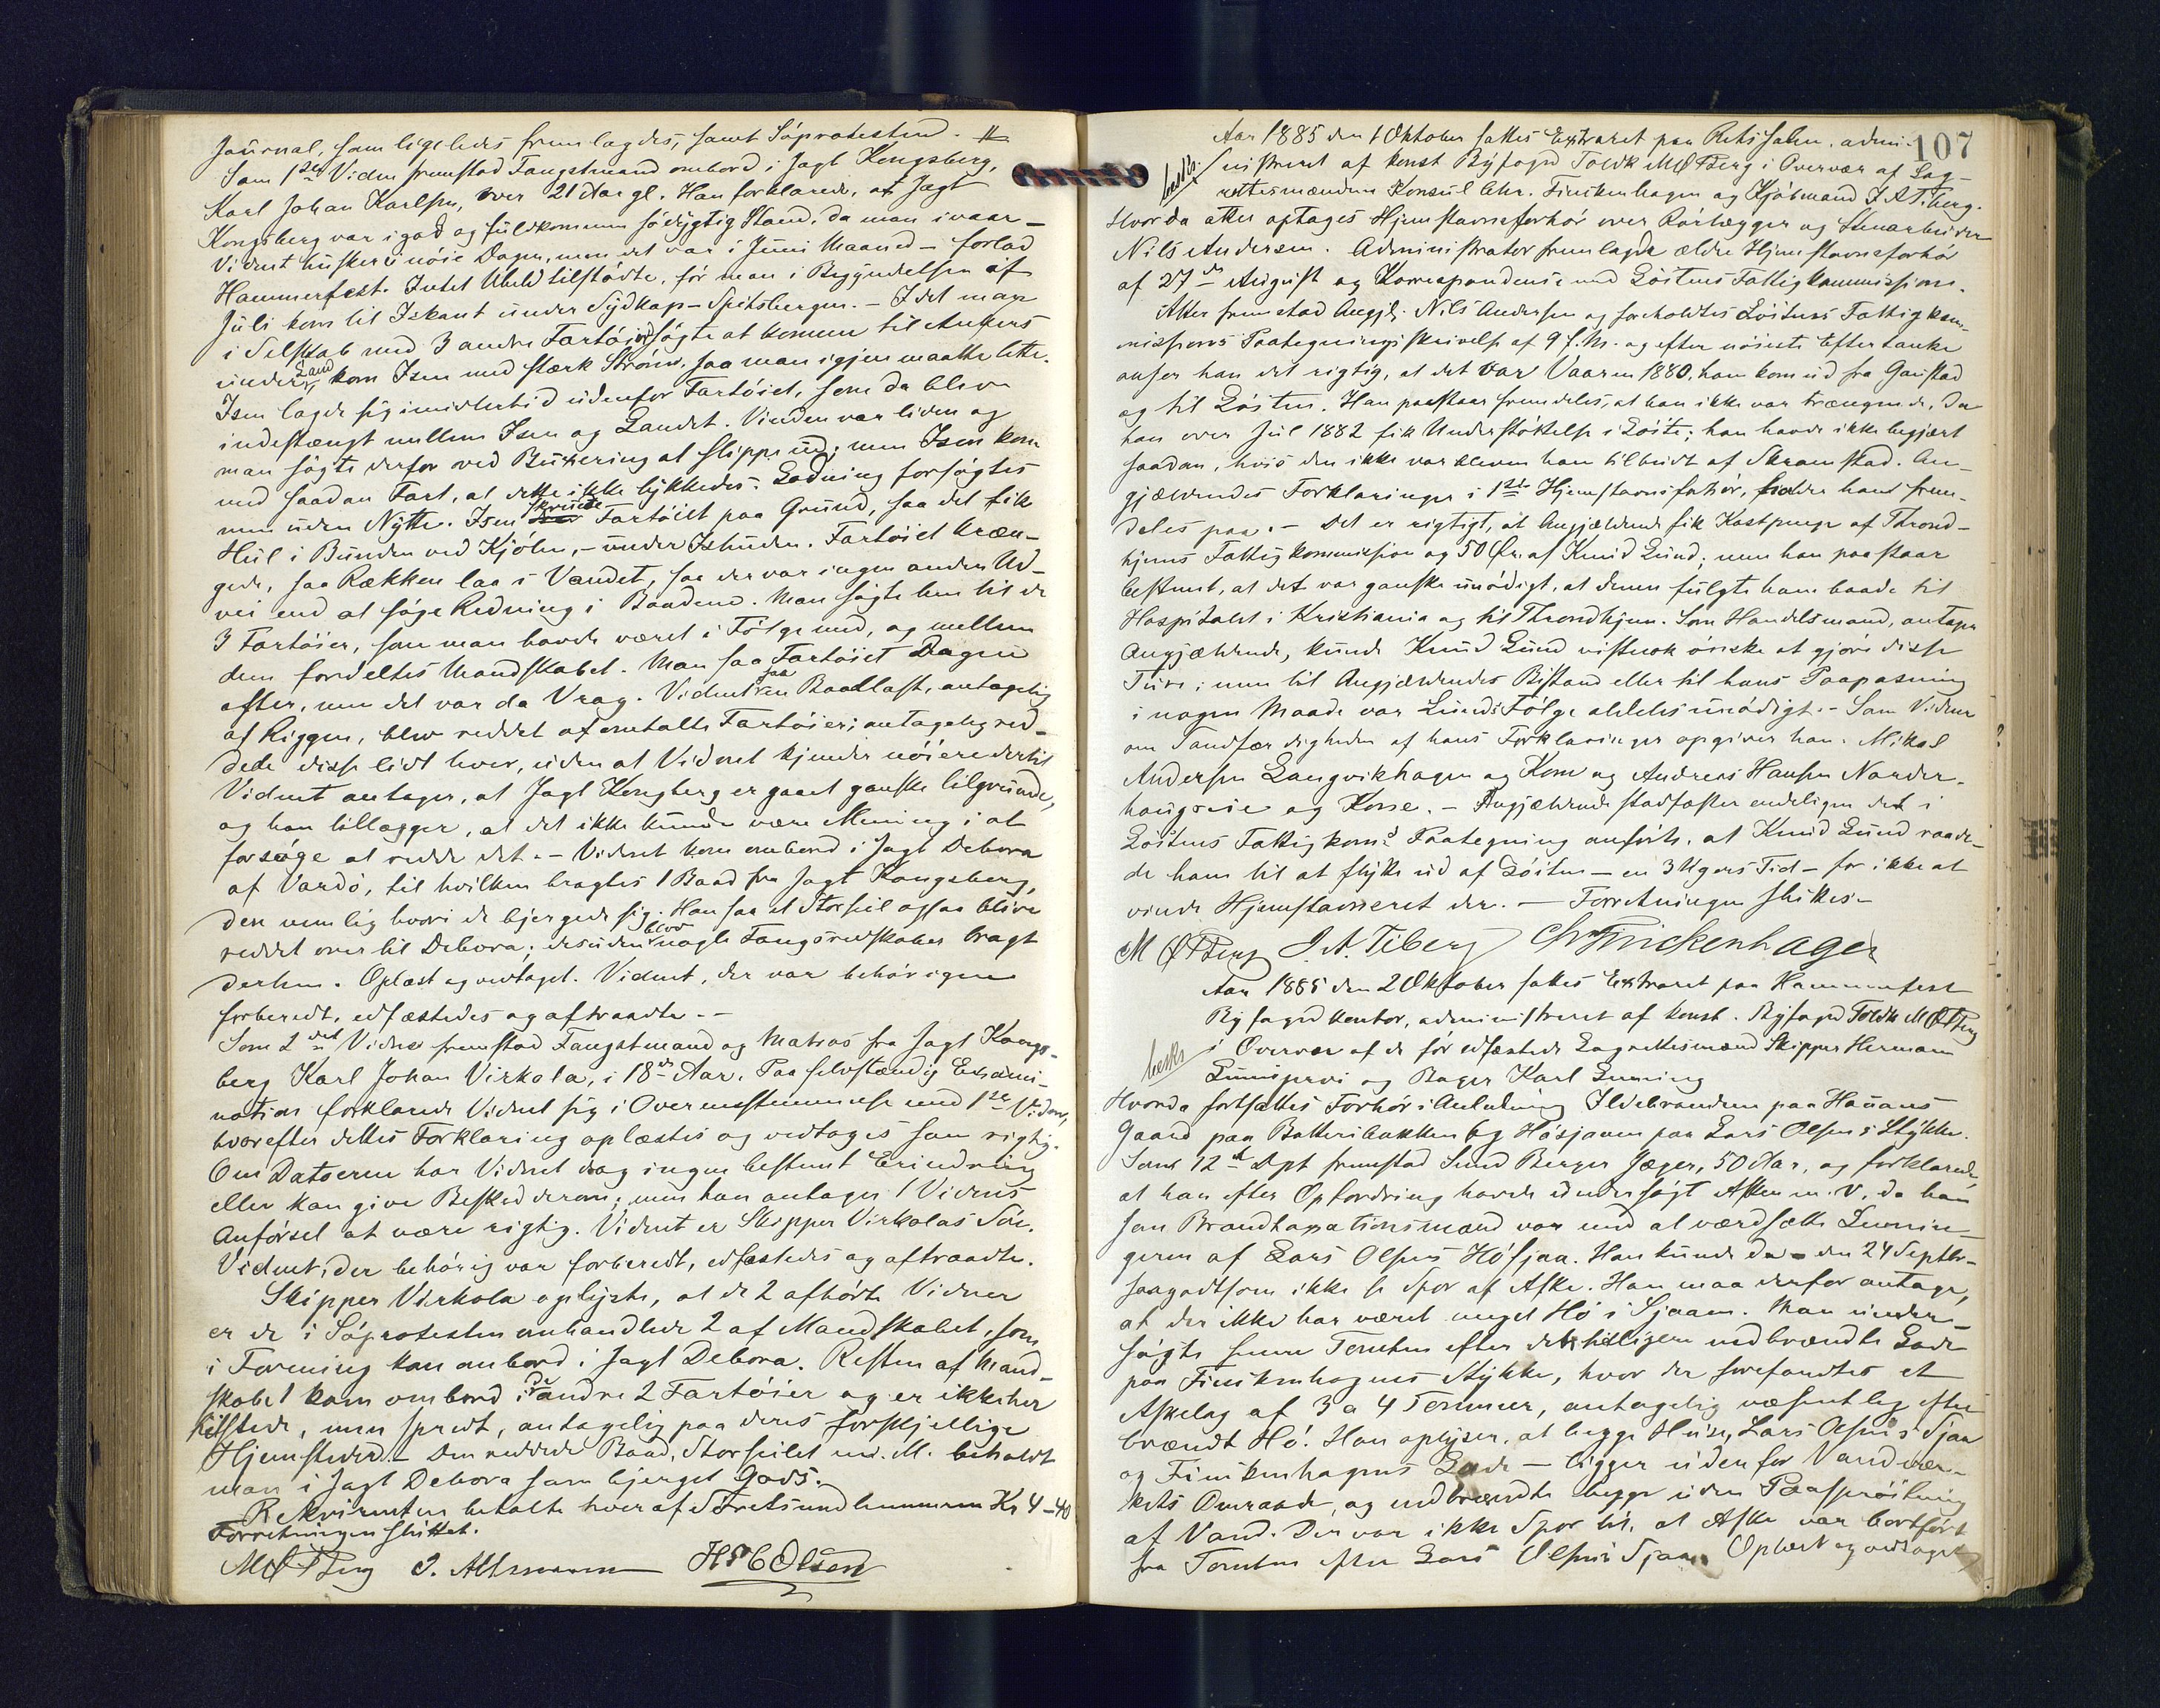 Journal, som ligeledes fremlagdes, samt Søprotesten. #
Som 1ste Vidne fremstod Fangstmand ombord i Jagt Kongsberg,
Karl Johan Karlsen, over 21 Aar gl. Han forklarede, at Jagt
Kongsberg var i god og fuldkommen sødygtig Stand, da man ivaar –
Vidnet husker ei nöie Dagen, men det var i Juni Maaned – forlod
Hammerfest. Intet Uheld tilstødte, før man i Begyndelsen af
Juli kom til Iskant under Sydkap – Spitsbergen. – Idet man
i Selskab med 3 andre Fartöier søgte at komme til Ankers
under Land, kom Isen med stærk Ström, saa man igjen maatte lette.
Isen lagde sig imidlertid udenfor Fartöiet, som da blev
indestængt mellem Isen og Landet. Vinden var liden og
man søgte derfor ved Buxering at slippe ud; men Isen kom
med saadan Fart, at dette ikke lykkedes. Lodning forsøgtes
men uden Nytte. Isen skruede Fartöiet paa Grund, saa det fik
Hul i Bunden ved Kjölen, – under Ishuden. Fartöiet kræn-
gede, saa Rækken laa i Vandet, saa der var ingen anden Ud-
vei end at søge Redning i Baadene. Man søgte hen til de
3 Fartöier, som man havde været i Følge med, og mellem
dem fordeltes Mandskabet. Man saa Fartöiet Dagen
efter, men det var da Vrag. Vidnet saa en Baadlast, antagelig
af Riggen, blev reddet af omtalte Fartöier; antagelig red-
dede disse lidt hver, uden at Vidnet kjender nöiere dertil
Vidnet antager, at Jagt Kongsberg er gaaet ganske tilgrunde,
og han tillægger, at det ikke kunde være Mening i at
forsøge at redde det. – Vidnet kom ombord i Jagt Debora
af Vardø, til hvilken bragtes 1 Baad fra Jagt Kongsberg,
den nemlig hvori de bjergede sig. Han saa et Storseil ogsaa blive
reddet over til Debora; desuden blev nogle Fangsredskaber bragt
derhen. Oplæst og vedtaget. Vidnet, der var behörigen
forberedt, edfæstedes og aftraadte. –
Som 2det Vidne fremstod Fangstmand og Matros fra Jagt Kongs-
berg Karl Johan Virkola, i 18de Aar. Paa selvstændig Exami-
nation forklarede Vidnet sig i Overensstemmelse med 1ste Vidne,
hvorefter dettes Forklaring oplæstes og vedtoges som rigtig.
Om Datoerne har Vidnet dog ingen bestemt Erindring
eller kan give Besked derom; men han antager 1 Vidnes
Anførsel at være rigtig. Vidnet er Skipper Virkolas Sön.
Vidnet, der behörig var forberedt, edfæstedes og aftraadte.
Skipper Virkola oplyste, at de 2 afhörte Vidner
er de i Søprotesten omhandlede 2 af Mandskabet, som
i Forening kom ombord i Jagt Debora. Resten af Mand-
skabet kom ombord i de andre 2 Fartöier og er ikke her
tilstede, men spredt, antagelig paa deres forskjellige
Hjemsteder. – Den reddede Baad, Storseilet m. M. beholdt
man i Jagt Debora som bjerget Gods.
Rekvirenten betalte hver af Søretsmedlemmerne Kr 4–40
Forretningen sluttet.
M Ø Berg J. Altmann H C Olsen
107
Aar 1885 den 1 Oktober sattes Extraret paa Retssalen, admi-
nistreret af konst Byfoged Toldk M Ø Berg i Overvær af Lag-
rettesmændene Konsul Chr. Finckenhagen og Kjöbmand J. A. Tiberg.
Hvorda atter optoges Hjemstavnsforhör over Rørlægger og Stenarbeider
Nils Andersen. Administrator fremlagde ældre Hjemstavnsforhör
af 27de August og Korrespondence med Løitens Fattigkommission.
Atter fremstod Angjæl. Nils Andersen og foreholdtes Löitens Fattigkom-
missions Paategningsskrivelse af 9 f. M. og efter nöieste Eftertanke
anser han det rigtig, at det var Vaaren 1880, han kom ud fra Gaustad
og til Löiten. Han paastaar fremdeles, at han ikke var trængende, da
han over Jul 1882 fik Understöttelse i Löite; han havde ikke begjært
saadan, hvis den ikke var bleven ham tilbudt af Skramstad. An-
gjældendes Forklaringer i 1ste Hjemstavnsforhör, holder han frem-
deles paa. – Det er rigtigt, at Angjældende fik Kostpenge af Thrond-
hjems Fattigkommission og 50 Kr. af Knud Lund; men han paastaar
bestemt, at det var ganske unödigt, at denne fulgte ham baade til
Hospitalet i Kristiania og til Throndhjem. Som Handelsmand, antager
Angjældende, kunde Knud Lund vistnok önske at gjöre disse
Ture; men til Angjældendes Bistand eller til hans Paapasning
i nogen Maade var Lunds Følge aldeles unödigt. – Som Vidner
om Sandfærdigheden af hans Forklaringer opgiver han: Mikal
Andersen Langvikhagen og Kone og Andreas Hansen Norder-
haugseie og Kone. – Angjældende stadfæster endeligen det i
Löitens Fattigkoms Paategning anførte, at Knud Lund raade-
de ham til at flytte ud af Löiten – en 3 Ugers Tid – for ikke at
vinde Hjemstavnsret der. – Forretningen sluttes. –
M Ø Berg J. A. Tiberg Chr Finckenhagen
Aar 1885 den 2 Oktober sattes Extraret paa Hammerfest
Byfogedkontor, administreret af konst. Byfoged Toldk M Ø Berg
i Overvær af de før edfæstede Lagrettesmænd Skipper Hermann
beskr
og Bager Karl
Hvorda fortsattes Forhör i Anledning Ildebranden paa Hauans
Gaard paa Batteribakken og Høsjaaen paa Lars Olsens Stykke.
Som 12te Dpt fremstod Smed Berger Jæger, 50 Aar, og forklarede
at han efter Opfordring havde undersøgt Asken m. v. da han
som Brandtaxationsmand var med at værdsætte Levnin-
gerne af Lars Olsens Høsjaa. Han kunde da – den 24 Septbr –
saagodtsom ikke se Spor af Aske. Han maa derfor antage,
at der ikke har været meget Hø i Sjaaen. Man under-
søgte senere Tomten efter den tidligere nedbrændte Lade
paa Finckenhagens Stykke, hvor der forefandtes et
Askelag af 3 a 4 Tommer, antagelig væsentlig efter
brændt Hø. Han oplyser, at begge Huse, Lars Olsens Sjaa
og Finckenhagens Lade – ligger udenfor Vandvær-
kets Omraade, og nedbrændte begge uden Paasprøitning
af Vand. Der var ikke Spor til, at Aske var bortført
fra Tomten efter Lars Olsens Sjaa. Oplæst og vedtaget